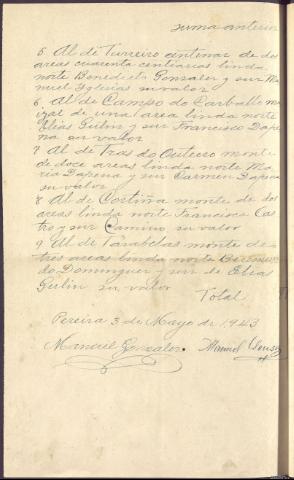 suma anterior
5 Al de Turreiro antenas de dos
areas cuarenta centiarias linda
norte Benedicto Gonzalez y sur Ma
nuel Yglesias su valor
6 Al de Campo do Carballo m
de una area linda norte
Elias Gulin y sur Francisco Dape
na su valor
7 Al de Tras do Outeiro monte
de doce areas linda norte Ma
ria Dapena y sur Carmen Dapena
su valor
8 Al de Cortiña monte de dos
areas linda norte Francisca Cas
tro y sur Camino su valor
9 Al de Tarabelas monte de
tres areas linda norte Bermun
do Dominguez y sur de Elias
Gulin su valor
Total
Pereira 3 de Mayo de 1,943
Manuel Gonzalez Manuel